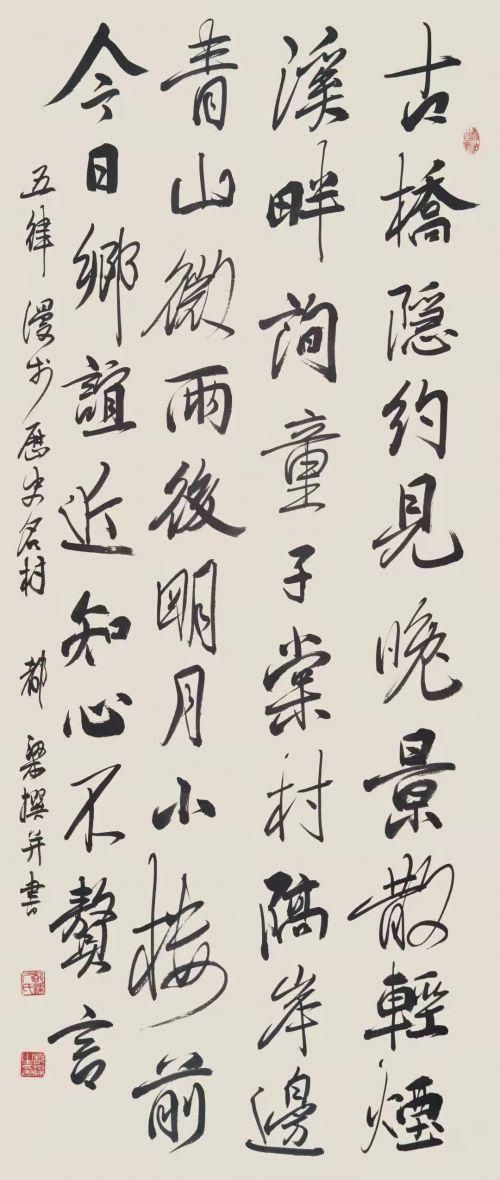 古橋隐約見晚景散輕煙
溪畔詢童子棠村隔岸邊
青山微雨後明月小樓前
今日鄉誼近知心不贅言
五律 漫步歷史名村 都梁撰并書